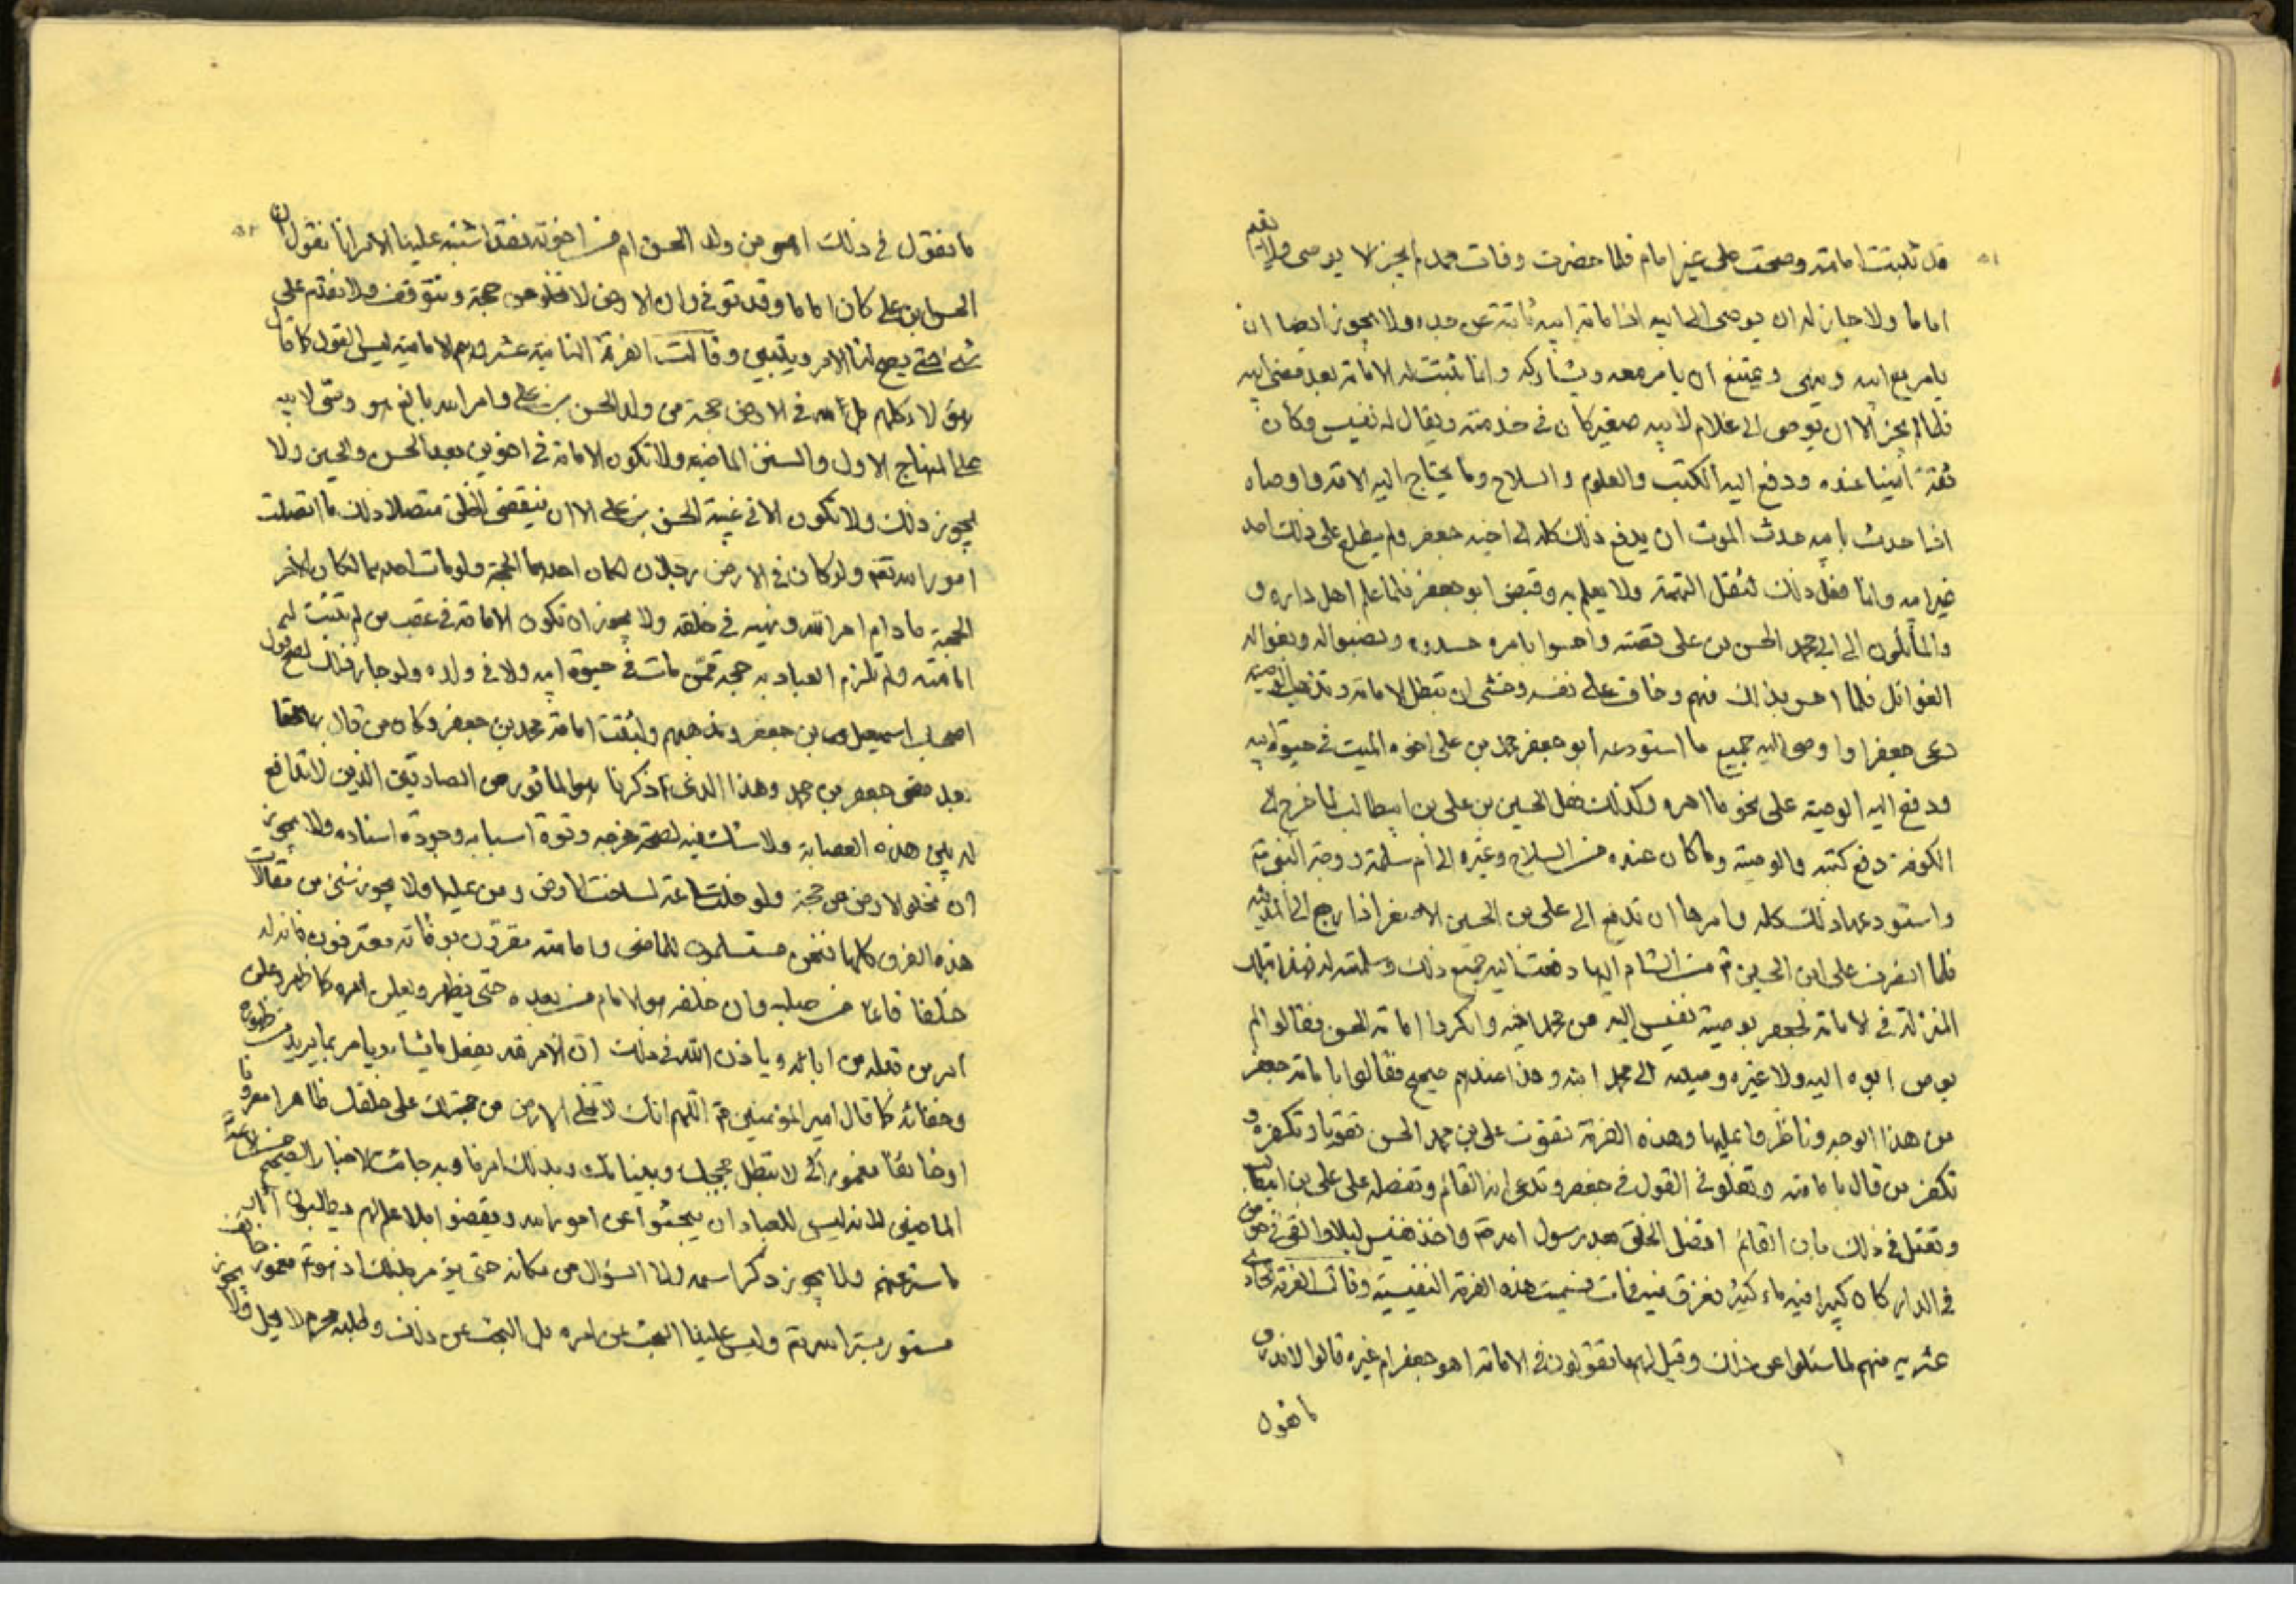 ٥١
قد ثبتت امامته وصحت على غير امام فلما حضرت وفات محمد لم يجز ان لا يوصى ولا يقيم
اماما ولا جاز له ان يوصى الى ابيه اذ امامة ابيه ثابتة عن جده ولا يجوز ايضا ان
يامر مع ابيه وينهى ويمتنع ان يامر معه ويشاركه وانما ثبتت له الامامة بعد مضى ابيه
فلما لم يجز الا ان يوصى الى غلام لابيه صغير كان فى خدمته ويقال له نفيس وكان
ثقة امينا عنده ودفع اليه الكتب والعلوم والسلاح وما يحتاج اليه الامة واوصاه
اذا حدث بابيه حدث الموت ان يدفع ذلك كله الى اخيه جعفر ولم يطلع على ذلك احد
غير ابيه وانما فعل ذلك لتقل التهمة ولا يعلم به وقبض ابو جعفر فلما علم اهل داره و
والمائلون الى ابى محمد الحسن بن على قصته واحسوا بامره حسدوه ونصبوا له وبغوا له
الغوائل فلما احس بذلك منهم وخاف على نفسه وخشى ان تبطل الامامة وتذهب الوصية
دعى جعفرا واوصى اليه جميع ما استودعه ابو جعفر محمد بن على اخوه الميت فى حيوة ابيه
ودفع اليه الوصية على نحو ما امره وكذلك فعل الحسين بن على بن ابيطالب لما خرج الى
الكوفة دفع كتبه والوصية وما كان عنده من السلاح وغيره الى ام سلمة زوجة النبى
واستودعها ذلك كله وامرها ان تدفع الى على بن الحسين الاصغر اذا رجع الى المدينة
فلما انصرف على ابن الحسين من الشام اليها دفعت اليه جميع ذلك وسلمته له فهذا بتلك
المنزلة فى الامامة لجعفر بوصية نفيس اليه عن محمد اخيه وانكروا امامة الحسن فقالوا لم
يوص ابوه اليه ولا غيره وصيته الى محمد ابنه وهذا عندهم صحيح فقالوا بامامة جعفر
من هذا الوجه وناظروا عليها وهذه الفرقة تتقول على ابى محمد الحسن تقولا وتكفره و
تكفر من قال بامامته وتغلو فى القول فى جعفر وتدعى انه القائم وتفضله على على بن ابيطالب
وتعتل فى ذلك بان القائم افضل الخلق بعد رسول الله واخذ نفيس ليلا والقى فى حوض
فى الدار كان كبيرا فيه ماء كثير فغرق فيه فمات فسميت هذه الفرقة النفيسية وقالت الفرقة الحادى
عشرية منهم لما سئلوا عن ذلك وقيل لهم ما تقولون فى الامامة اهو جعفر ام غيره قالوا لا ندرى
ما نقول
٥٢
ما نقول فى ذلك اهو من ولد الحسن ام من اخوته فقد اشتبه علينا الامر انا نقول ان
الحسن ابن على كان اماما وقد توفى وان الارض لا تخلو من حجة ونتوقف ولا نقدم على
شىء حتى يصح لنا الامر ويتبين وقالت الفرقة الثانية عشر وهم الامامية ليس القول كما قال
هؤلاء كلهم بل لله فى الارض حجة من ولد الحسن بن على وامر الله بالغ هو وصى لابيه
على المنهاج الاول والسنن الماضيه ولا تكون الامامة فى اخوين بعد الحسن والحسين ولا
يجوز ذلك ولا تكون الا فى غيبة الحسن بن على الا ان ينقضى الخلق متصلا ذلك ما اتصلت
امور الله تعم ولو كان فى الارض رجلان لكان احدهما الحجة ولو مات احدهما لكان الاخر
الحجة ما دام امر الله ونهيه فى خلقه ولا يجوز ان تكون الامامة فى عقب من لم تثبت له
امامته ولم تلزم العباد به حجة ممن مات فى حيوة ابيه ولا فى ولده ولو جاز ذلك لصح قول
اصحاب اسمعيل بن جعفر ومذهبهم ولثبتت امامة محمد بن جعفر وكان من قال بها محقا
بعد مضى جعفر بن محمد وهذا الذى ذكرنا هو الماثور عن الصادقين الذين لا تدافع
له بين هذه العصابة ولا شك فيه لصحة مخرجه وقوة اسبابه وجودة اسناده ولا يجوز
ان تخلو الارض من حجة ولو خلت ساعة لساخت الارض ومن عليها ولا يجوز شئ من مقالات
هذه الفرق كلها فنحن مستسلمون للماضى وامامته مقرون بوفاته معترفون بان له
خلفا قائما من صلبه وان خلفه هو الامام من بعده حتى يظهر ويعلن امره كما ظهر وعلن
امر من قبله من ابائه وياذن الله فى ذلك ان الامر لله يفعل ما يشاء ويامر بما يريد من ظهوره
وخفائه كما قال امير المؤمنين اللهم انك لا تخلى الارض من حجة لك على خلقك ظاهرا معروفا
او خائفا مغمورا كى لا تبطل حججك وبيناتك وبذلك امرنا وبه جائت الاخبار الصحيحة عن الائمة
الماضين لانه ليس للعباد ان يبحثوا عن امور الله ويقضوا بلا علم لهم ويطلبون اثار
ما ستر عنهم ولا يجوز ذكر اسمه ولا السؤال عن مكانه حتى يؤمر بذلك اذ هو مغمور خائف
مستور بستر الله تعم وليس علينا البحث عن امره بل البحث عن ذلك وطلبه محرم لا يحل ولا يجوز